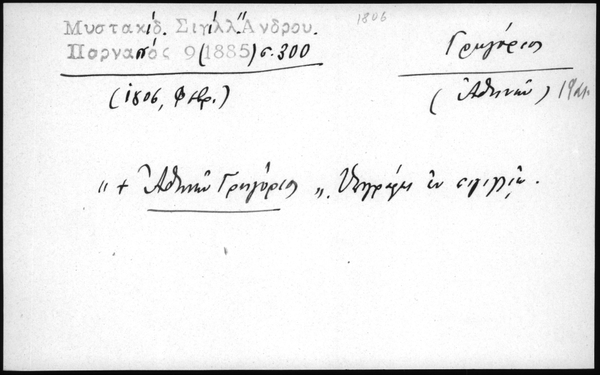 1806
Μυστακίδ. Σιγίλλ. Ἄνδρου.
Παρνασσός 9 (1885) σ. 300
(1806, Φεβρ.)
Γρηγόριος
(Ἀθηνῶν)
"+ Ἀθηνῶν Γρηγόριος". Ὑπογράφει ἐν σιγιλλίῳ.